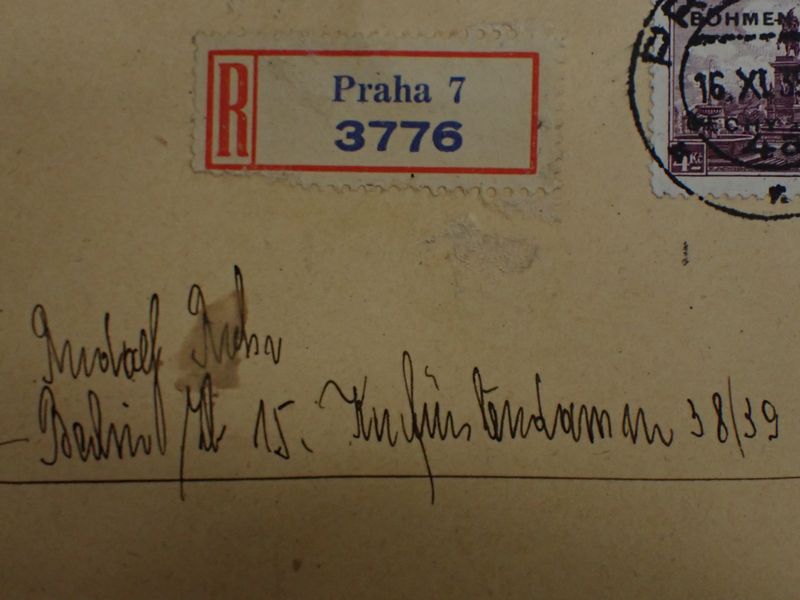 R
Praha 7
3776
BÖHMEN
16.XI.
4 Kč
Rudolf
Berlin 15. Kurfürstendamm 38/39